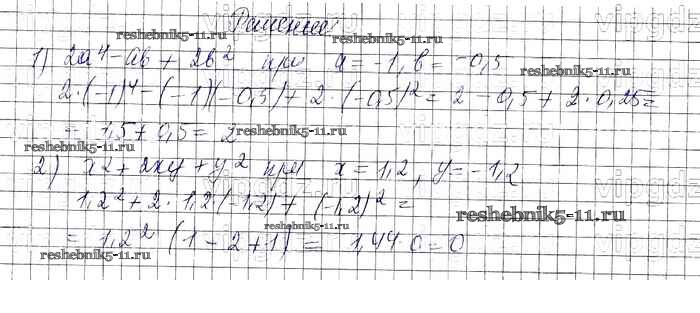 Решение
1) 2a⁴ - ab + 2b² при a = -1, b = -0,5
2·(-1)⁴ - (-1)(-0,5) + 2·(-0,5)² = 2 - 0,5 + 2·0,25 =
= 1,5 + 0,5 = 2
2) x² + 2xy + y² при x = 1,2, y = -1,2
1,2² + 2·1,2·(-1,2) + (-1,2)² =
= 1,2² (1 - 2 + 1) = 1,44·0 = 0
reshebnik5-11.ru
reshebnik5-11.ru
reshebnik5-11.ru
reshebnik5-11.ru
reshebnik5-11.ru
reshebnik5-11.ru
reshebnik5-11.ru
reshebnik5-11.ru
reshebnik5-11.ru